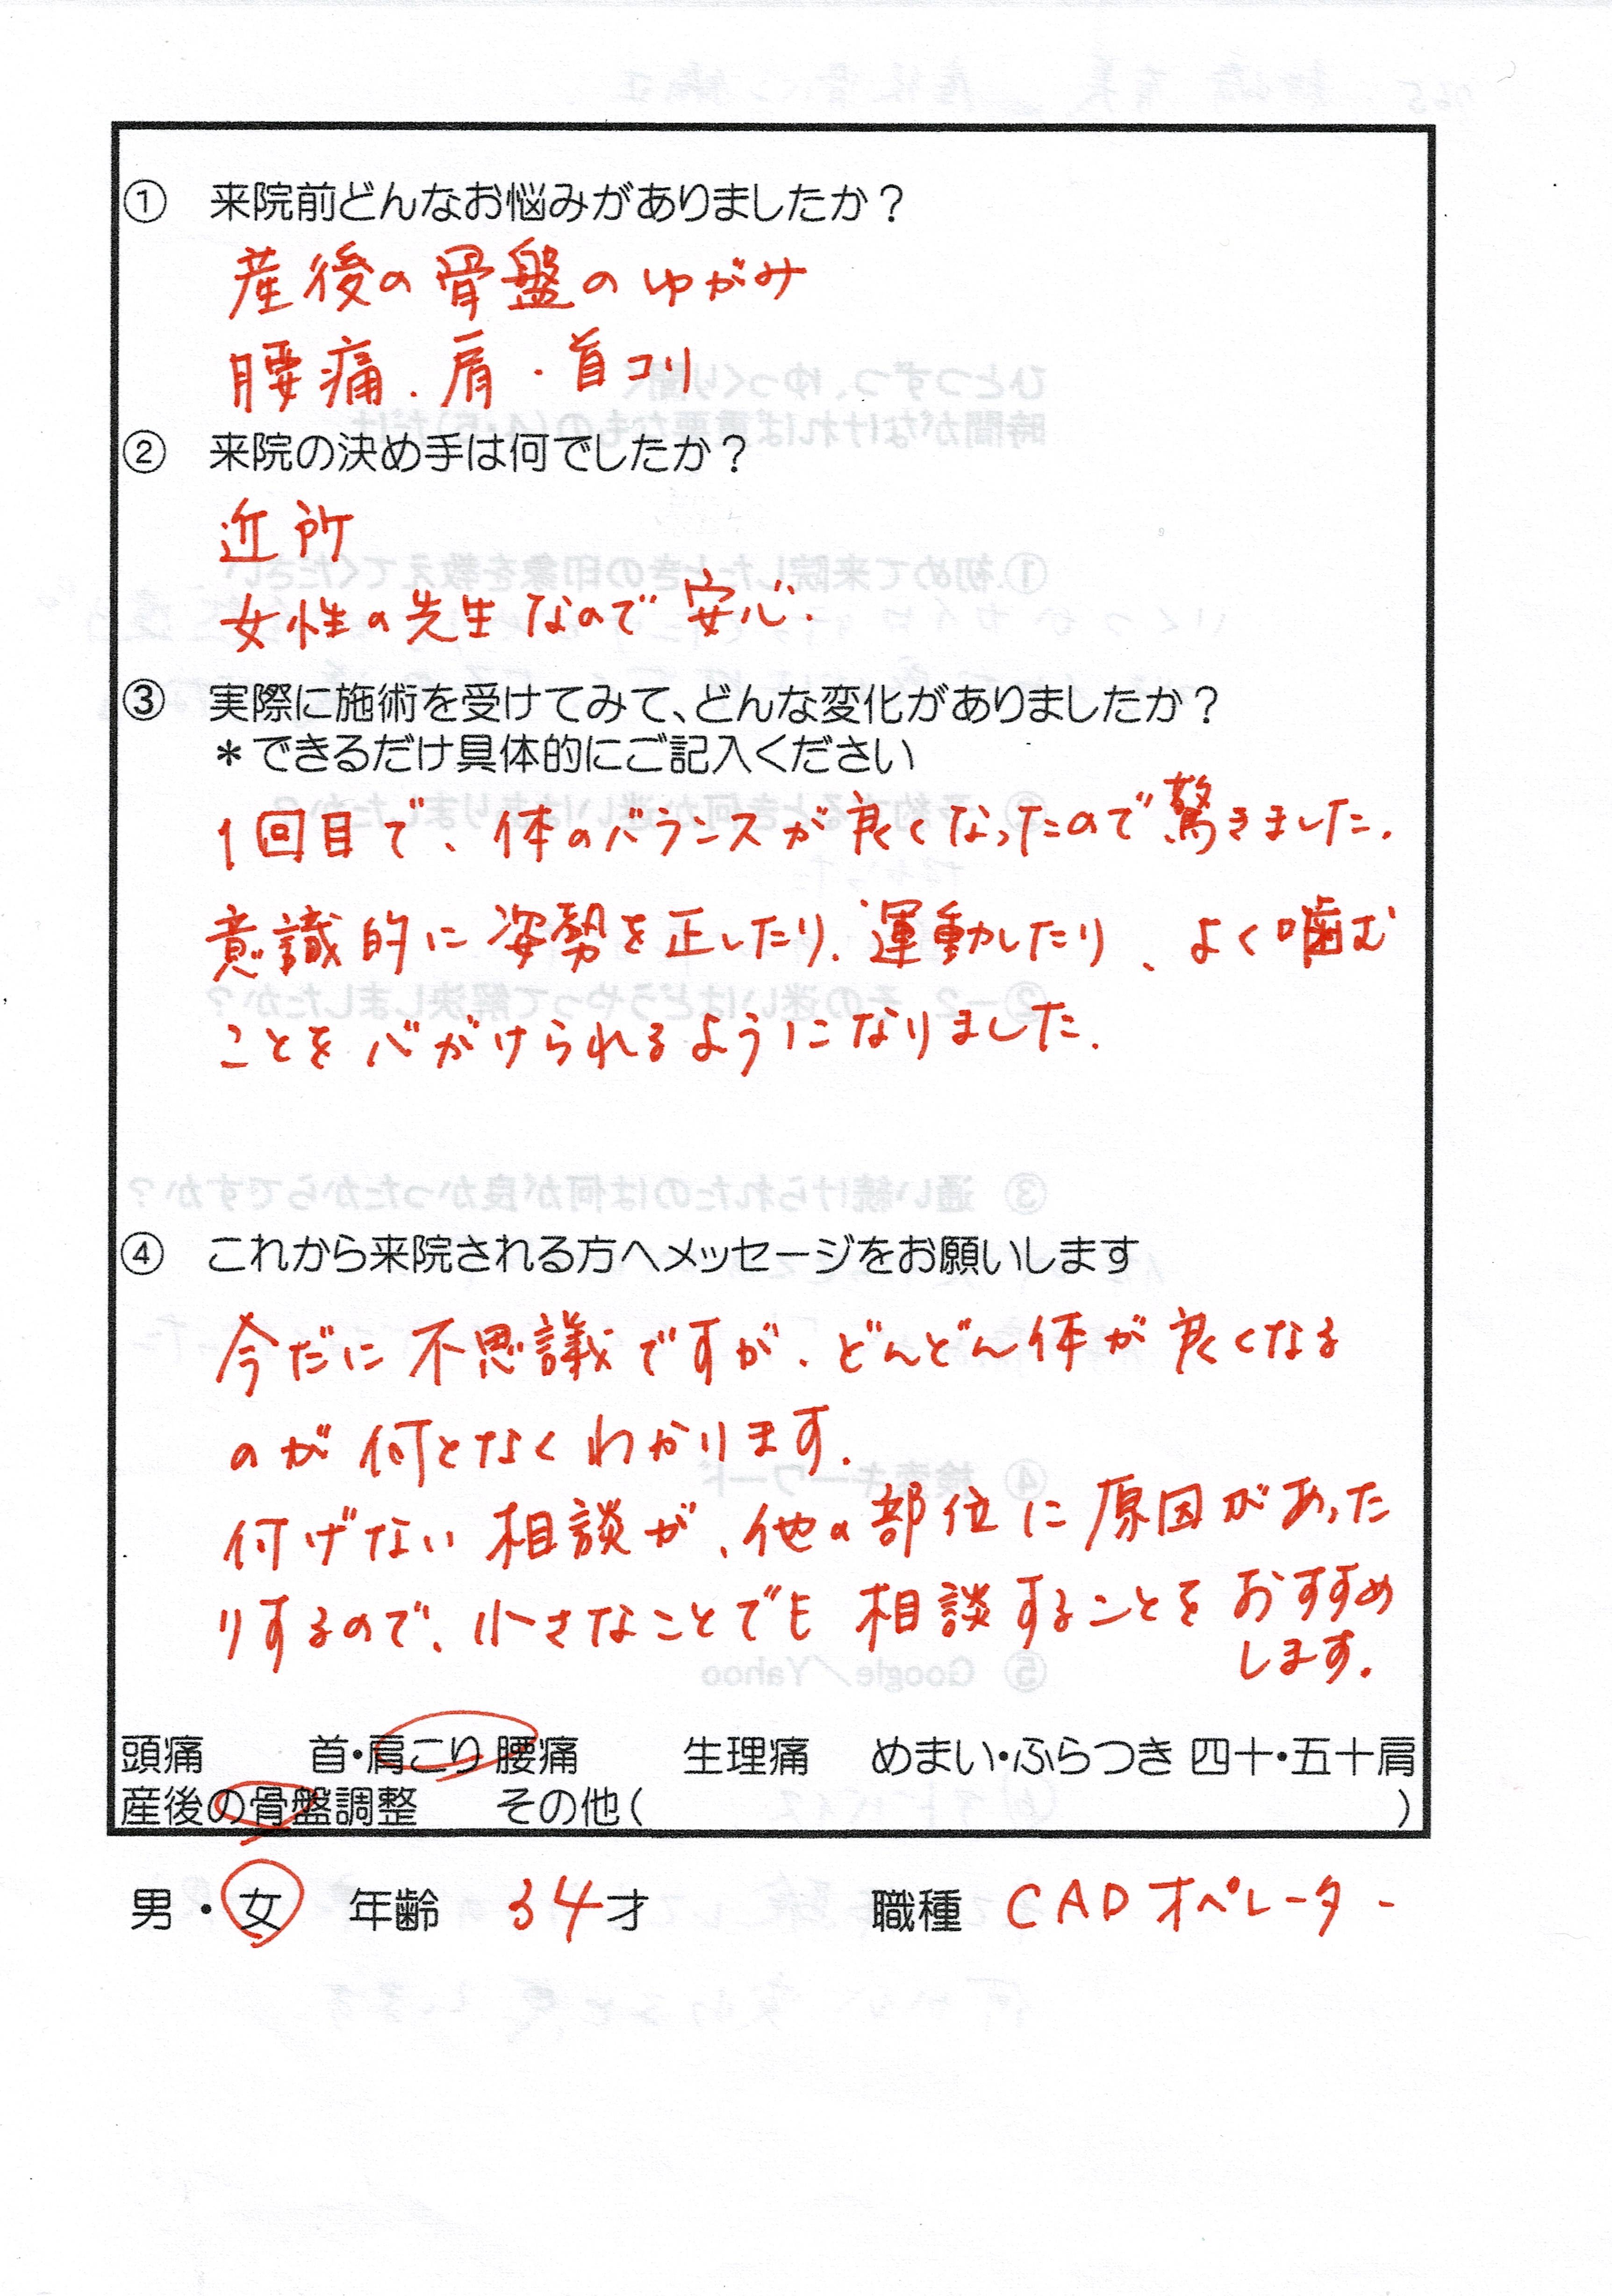 ① 来院前どんなお悩みがありましたか？
産後の骨盤のゆがみ
腰痛.肩・首コリ
② 来院の決め手は何でしたか？
近所
女性の先生なので安心.
③ 実際に施術を受けてみて、どんな変化がありましたか？
＊できるだけ具体的にご記入ください
1回目で、体のバランスが良くなったので驚きました.
意識的に姿勢を正したり.運動したり、よく噛む
ことを心がけられるようになりました.
④ これから来院される方へメッセージをお願いします
今だに不思議ですが、どんどん体が良くなる
のが何となくわかります.
付げない相談が、他の部位に原因があった
りするので、小さなことでも相談することをおすすめ
します.
頭痛 首・肩こり 腰痛 生理痛 めまい・ふらつき 四十・五十肩
産後の骨盤調整 その他( )
男・女 年齢 34才 職種 CADオペレーター